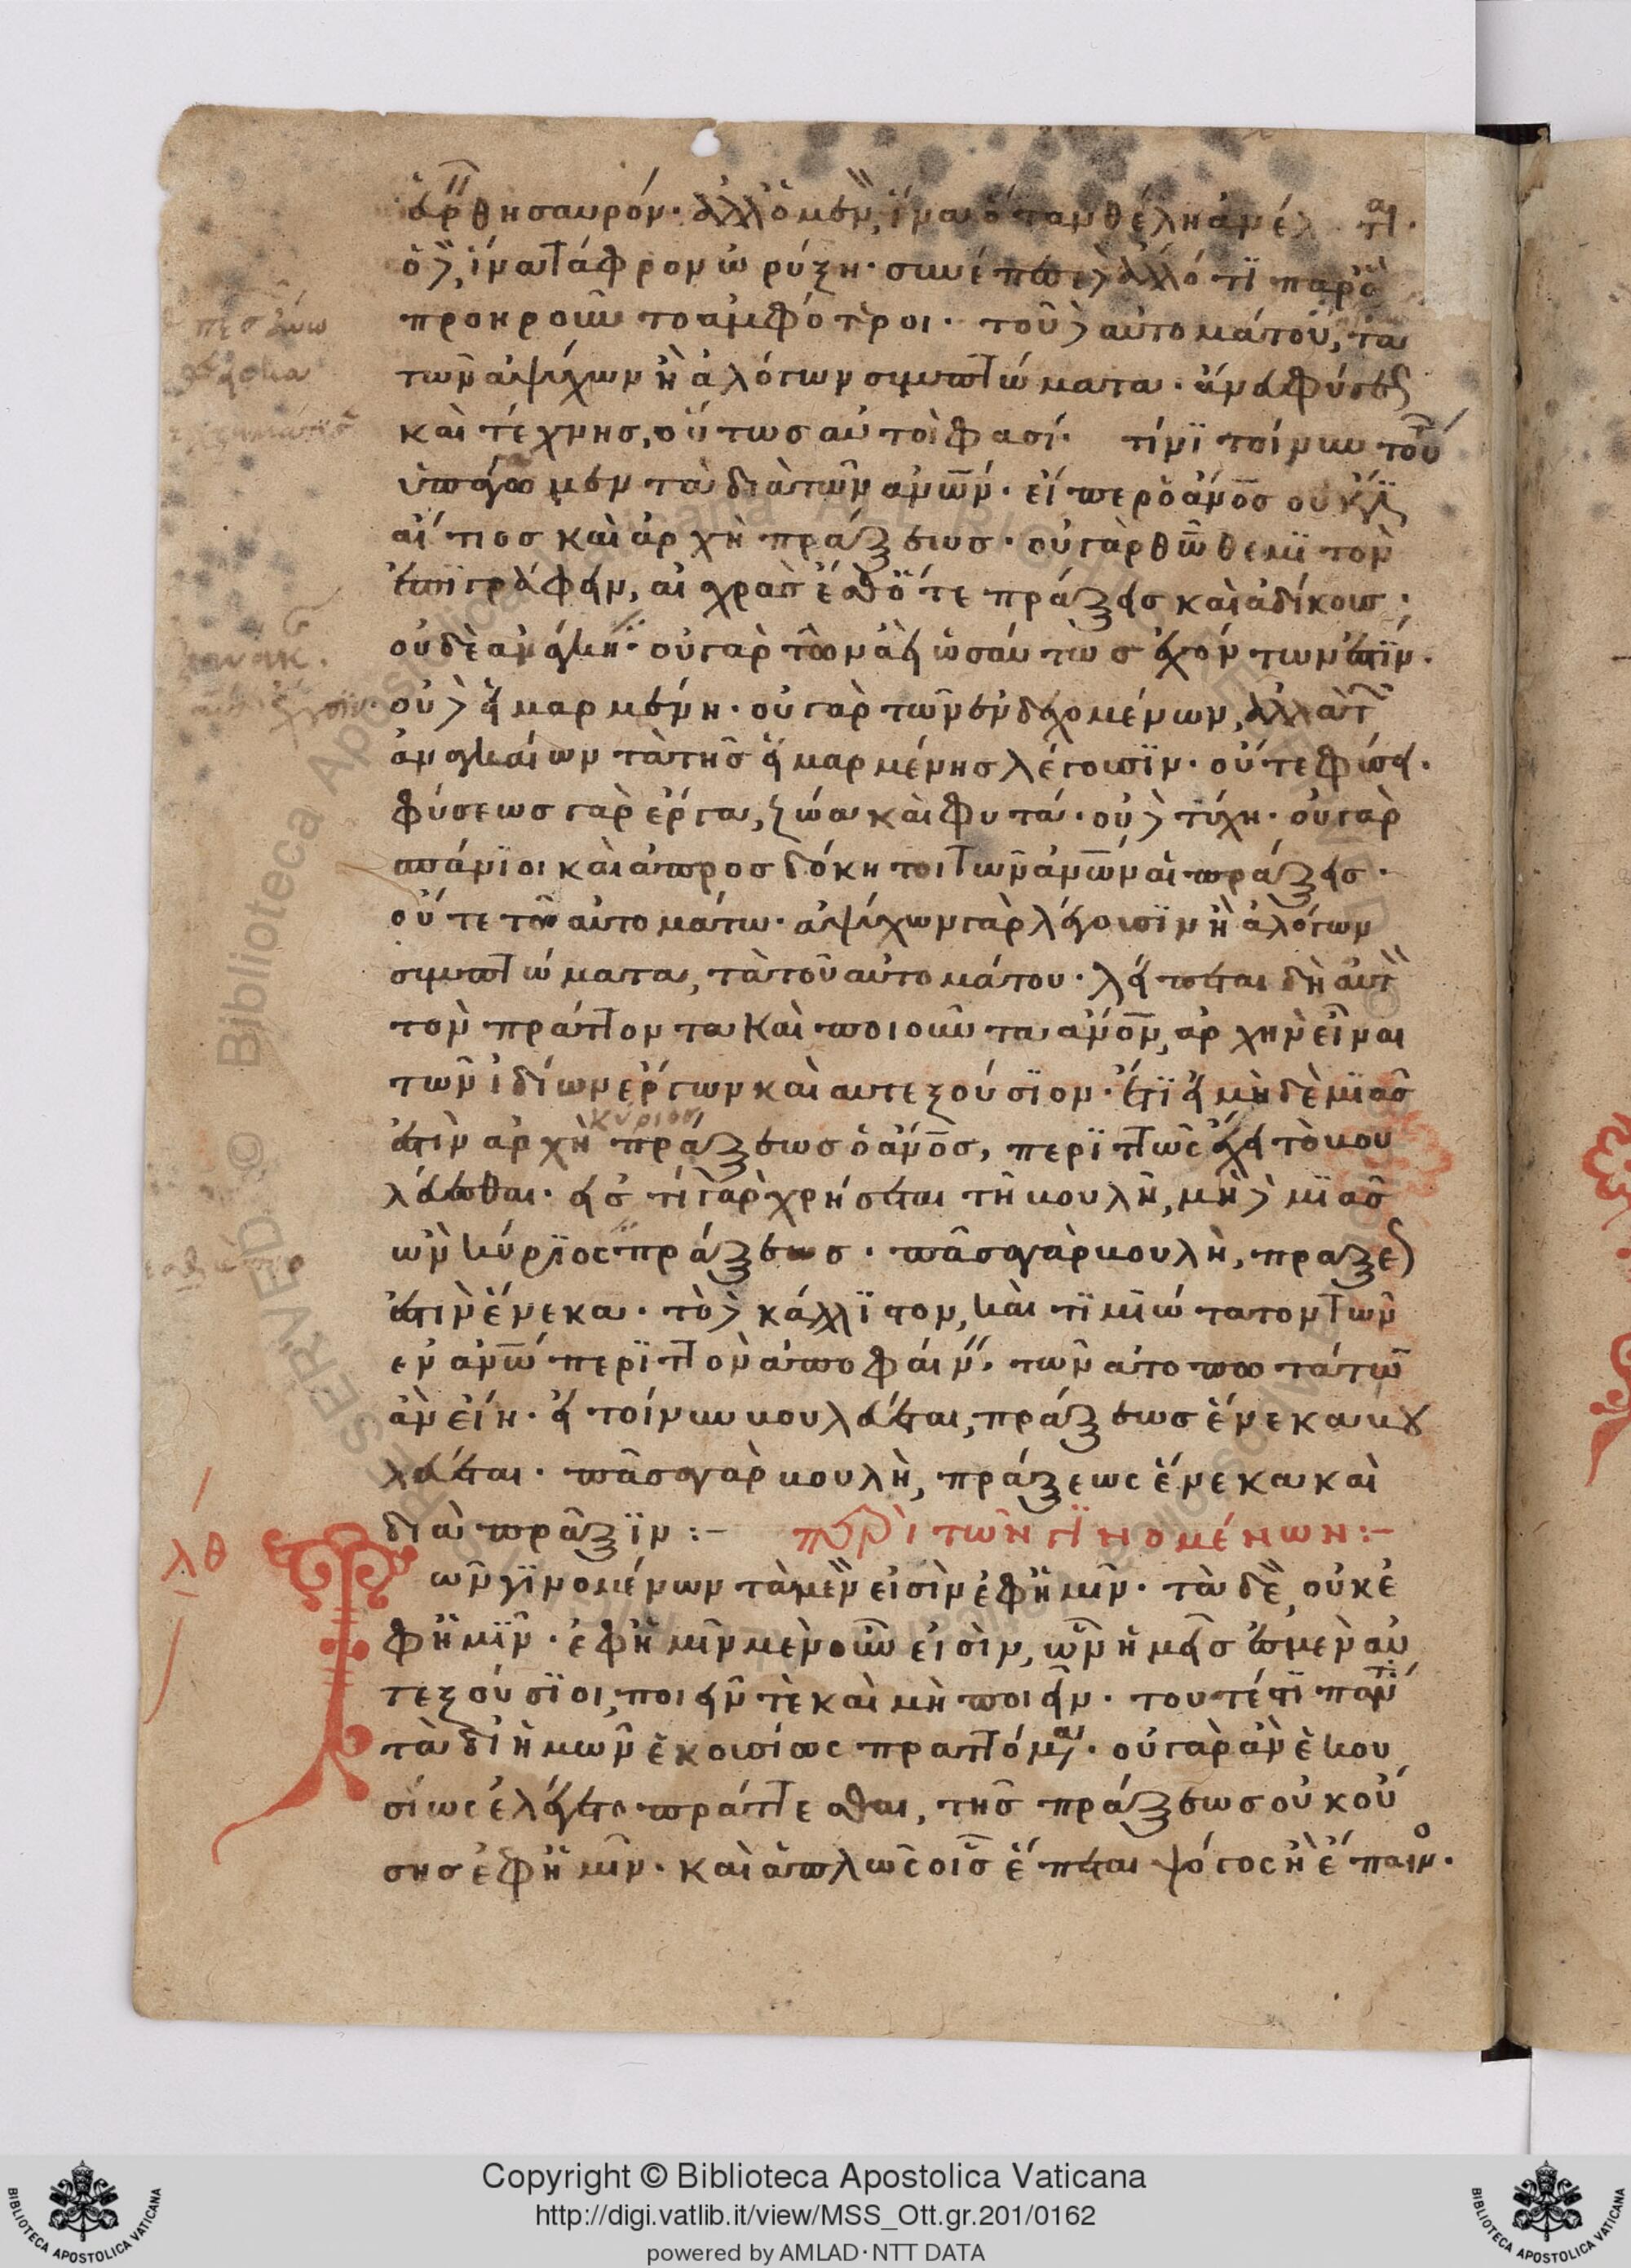 εὗρε θησαυρόν· ἀλλ' ὁ μὲν, ἵνα ὅταν θέλη ἀνέληται·
ὁ δὲ, ἵνα τάφρον ὠρύξη· συνέπεσε δὲ ἄλλό τϊ παρ' ὃ
προηροῦντο ἀμφότεροι· τοῦ δὲ αὐτομάτου, τὰ
τῶν ἀψύχων ἢ ἀλόγων συμπτώματα· ἄνευ φύσεως
καὶ τέχνης, οὕτως αὐτοὶ φασί· τίνϊ τοίνυν τούτων
ὑπαγάγωμεν τὰ διὰ τῶν ἀνῶν· εἴπερ ὁ ἄνος οὐκ ἔστϊν
αἴτιος καὶ ἀρχὴ πράξεως· οὐ γὰρ θῶ θεμϊτὸν
ἐπϊγράφειν, αἰσχρὰς ἔσθ' ὅτε πράξεις καὶ ἀδίκους·
οὐδὲ ἀνάγκη· οὐ γὰρ τῶν ἀεὶ ὡσαύτως ἐχόντων ἐστϊν·
οὐδὲ εἱμαρμένη· οὐ γὰρ τῶν ἐνδεχομένων, ἀλλὰ τῶν
ἀναγκαίων τὰ τῆς εἱμαρμένης λέγουσϊν· οὔτε φύσει·
φύσεως γὰρ ἔργα, ζῶα καὶ φυτά· οὐδὲ τύχη· οὐ γὰρ
σπάνϊοι καὶ ἀπροσδόκητοι τῶν ἀνῶν αἱ πράξεις·
οὔτε τῶ αὐτομάτω· ἀψύχων γὰρ λέγουσϊν ἢ ἀλόγων
συμπτώματα, τὰ τοῦ αὐτομάτου· λείπεται δὴ αὐτὸν
τὸν πράττοντα καὶ ποιοῦντα ἄνον, ἀρχὴν εἶναι
τῶν ἰδίων ἔργων καὶ αυτεξούσϊον· ἔτϊ εἰ μὴδὲ μϊᾶς
ἐστὶν ἀρχὴ πράξεως ὁ ἄνος, περϊττῶς ἔχει τὸ βου
κύριος
λεύεσθαι· εἰς τί γὰρ χρήσεται τῆ βουλῆ, μὴδὲ μϊᾶς
ὢν κύρϊος πράξεως· πᾶσα γὰρ βουλὴ, πράξεως
ἐστὶν ἕνεκα· τὸ δὲ κάλλϊστον, καὶ τϊμϊώτατον τῶν
εν ἀνω περϊττὸν ἀποφαίνειν, τῶν ἀτοπωτάτων
ἂν εἴη· εἰ τοίνυν βουλεύεται, πράξεως ἕνεκα βου
λεύεται· πᾶσα γὰρ βουλὴ, πράξεως ἕνεκα καὶ
διὰ πρᾶξϊν :– περὶ τῶν γϊνομένων :–
λθ
Τῶν γϊνομένων τὰ μὲν εἰσὶν ἐφ' ἡμῖν· τὰ δὲ, οὐκ ἐ
φ' ἡμῖν· ἐφ' ἡμῖν μὲν οὖν εἰσὶν, ὧν ἡμεῖς ἐσμὲν αὐ
τεξούσϊοι, ποιεῖν τὲ καὶ μὴ ποιεῖν· τουτέστϊ πάντα
τὰ δι' ἡμῶν ἑκουσίως πραττόμενα· οὐ γὰρ ἂν ἑκου
σίως ἐλέγετο πράττεσθαι, τῆς πράξεως οὐκ οὔ
σης ἐφ' ἡμῖν· καὶ ἁπλῶς οἷς ἕπεται ψόγος ἢ ἔπαινος·
Copyright © Biblioteca Apostolica Vaticana
http://digi.vatlib.it/view/MSS_Ott.gr.201/0162
powered by AMLAD·NTT DATA
BIBLIOTECA APOSTOLICA VATICANA
BIBLIOTECA APOSTOLICA VATICANA